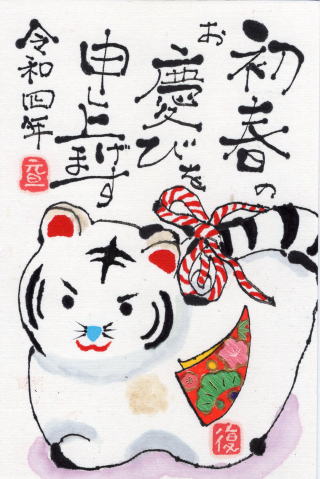 初春の
お慶びを
申し上げます
令和四年
元旦
復